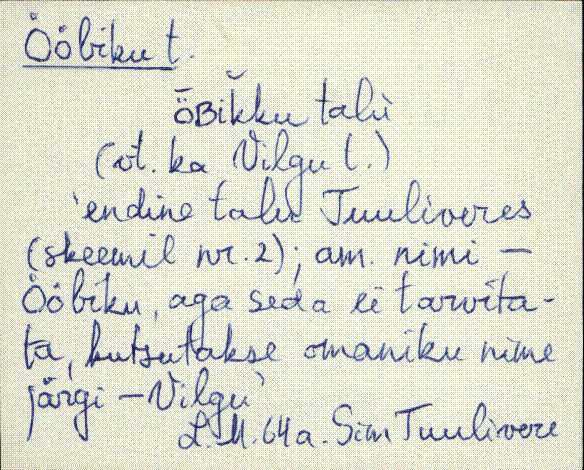 Ööbiku t.
ȫʙik̆ku talù
(vt. ka Vilgu t.)
'endine talu Tuuliveres
(skeemil nr. 2); am. nimi –
Ööbiku, aga seda ei tarvita-
ta, kutsutakse omaniku nime
järgi – Vilgu'
L. M. 64 a. Sim Tuulivere